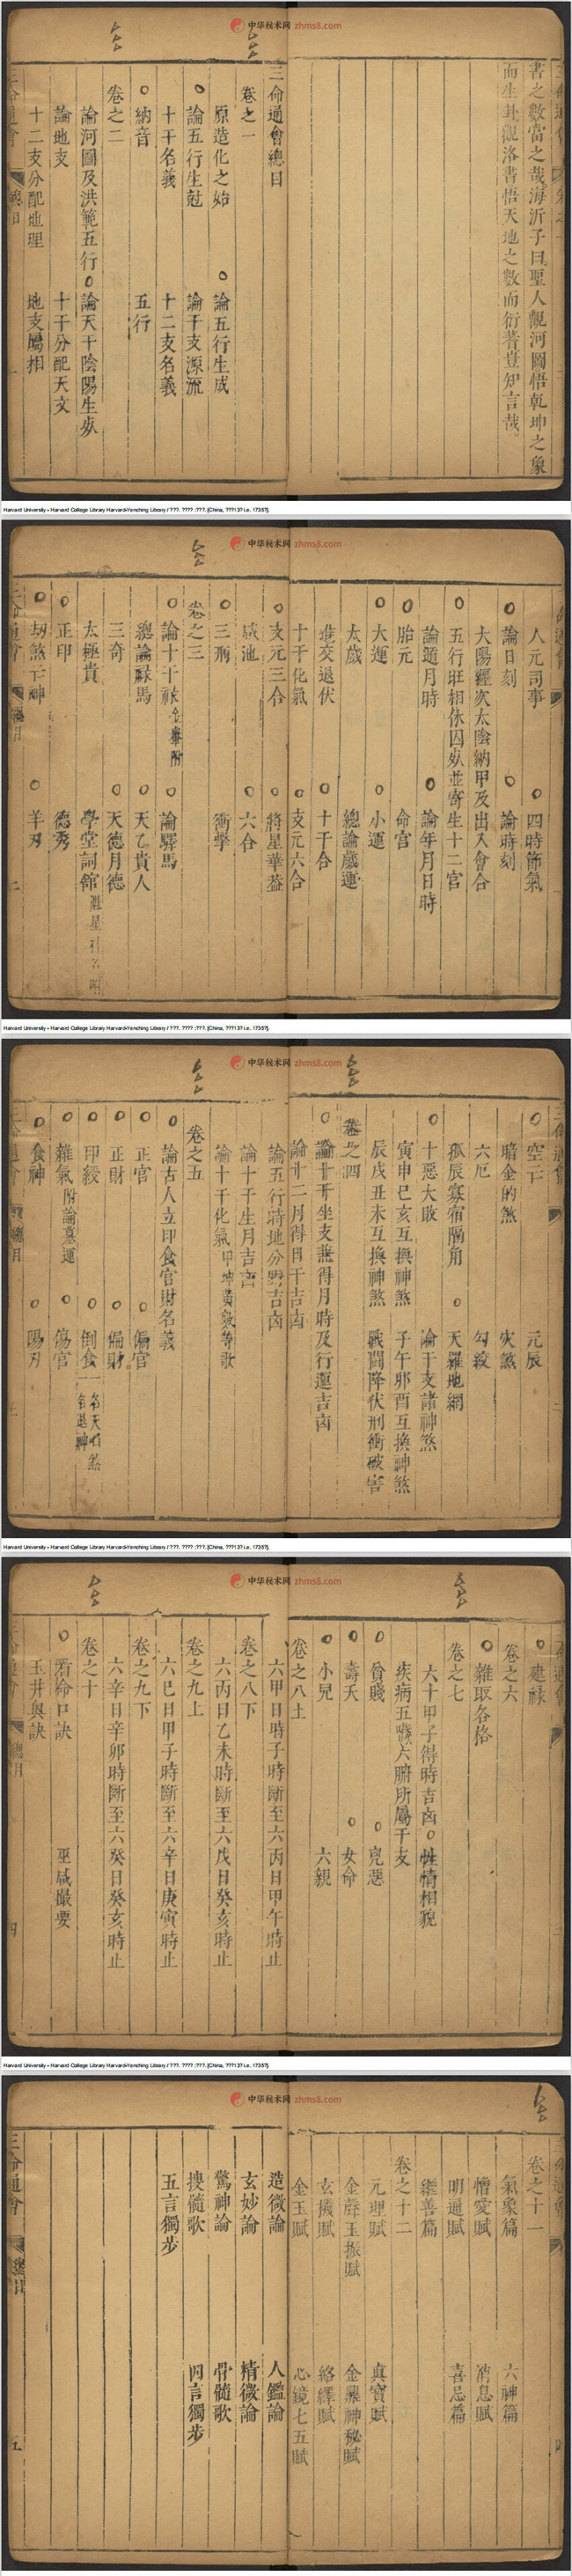 中华秘术网 zhms8.com
書之數當之哉海沂子曰聖人觀河圖悟乾坤之象
而生卦觀洛書悟天地之數而衍著豈知言哉
三命通會總目
卷之一
原造化之始 論五行生成
論五行生尅 論干支源流
十干名義 十二支名義
納音 五行
卷之二
論河圖及洪範五行 論天干陰陽生死
論地支 十干分配天文
十二支分配地理 地支屬相
Harvard University - Harvard College Library Harvard-Yenching Library / ???. ???? :???. [China, ???13? i.e. 1735?].
中华秘术网 zhms8.com
人元司事 四時節氣
論日刻 論時刻
太陽纏次太陰納甲及出入會合
五行旺相休囚死並寄生十二宮
論遁月時 論年月日時
胎元 命宮
大運 小運
太歲 總論歲運
進交退伏 十干合
十干化氣 支元六合
支元三合 將星華蓋
咸池 六合
三刑 衝擊
卷之三
論十干祿金轝附 論驛馬
總論祿馬 天乙貴人
三奇 天德月德
太極貴 學堂詞館
正印 德秀
劫煞亡神 羊刃
Harvard University - Harvard College Library Harvard-Yenching Library / ???. ???? :???. [China, ???13? i.e. 1735?].
中华秘术网 zhms8.com
空亡 元辰
暗金的煞 灾煞
六厄 勾絞
孤辰寡宿隔角 天羅地網
十惡大敗 論干支諸神煞
寅申巳亥互換神煞 子午卯酉互換神煞
辰戌丑未互換神煞 戰鬪降伏刑衝破害
卷之四
論十干坐支兼得月時及行運吉凶
論十二月得日干吉凶
論五行時地分野吉凶
論十干生月吉凶
論十干化氣
卷之五
論古人立印食官財名義
正官 偏官
正財 偏財
印綬 倒食
雜氣附論墓運 傷官
食神 陽刃
Harvard University - Harvard College Library Harvard-Yenching Library / ???. ???? :???. [China, ???13? i.e. 1735?].
中华秘术网 zhms8.com
建祿
卷之六
雜取各格
卷之七
六十甲子得時吉凶 性情相貌
疾病五臟六腑所屬干支
貧賤 兇惡
壽夭 女命
小兒 六親
卷之八上
六甲日時子時斷至六丙日甲午時止
卷之八下
六丙日乙未時斷至六戊日癸亥時止
卷之九上
六巳日甲子時斷至六辛日庚寅時止
卷之九下
六辛日辛卯時斷至六癸日癸亥時止
卷之十
看命口訣 巫咸撮要
玉井奧訣
Harvard University - Harvard College Library Harvard-Yenching Library / ???. ???? :???. [China, ???13? i.e. 1735?].
中华秘术网 zhms8.com
卷之十一
氣象篇 六神篇
憎愛賦 消息賦
明通賦 喜忌篇
繼善篇
卷之十二
元理賦 真寶賦
金聲玉振賦 金鼎神秘賦
玄機賦 絡繹賦
金玉賦 心鏡七五賦
造微論 人鑑論
玄妙論 精微論
驚神論 骨髓歌
搜髓歌 四言獨步
五言獨步